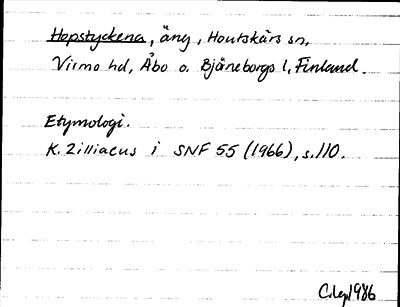 Hopstyckena, äng, Houtskärs sn,
Virmo hd, Åbo o. Bjäneborgs l, Finland.
Etymologi.
K. Zilliacus i SNF 55 (1966), s. 110.
1986